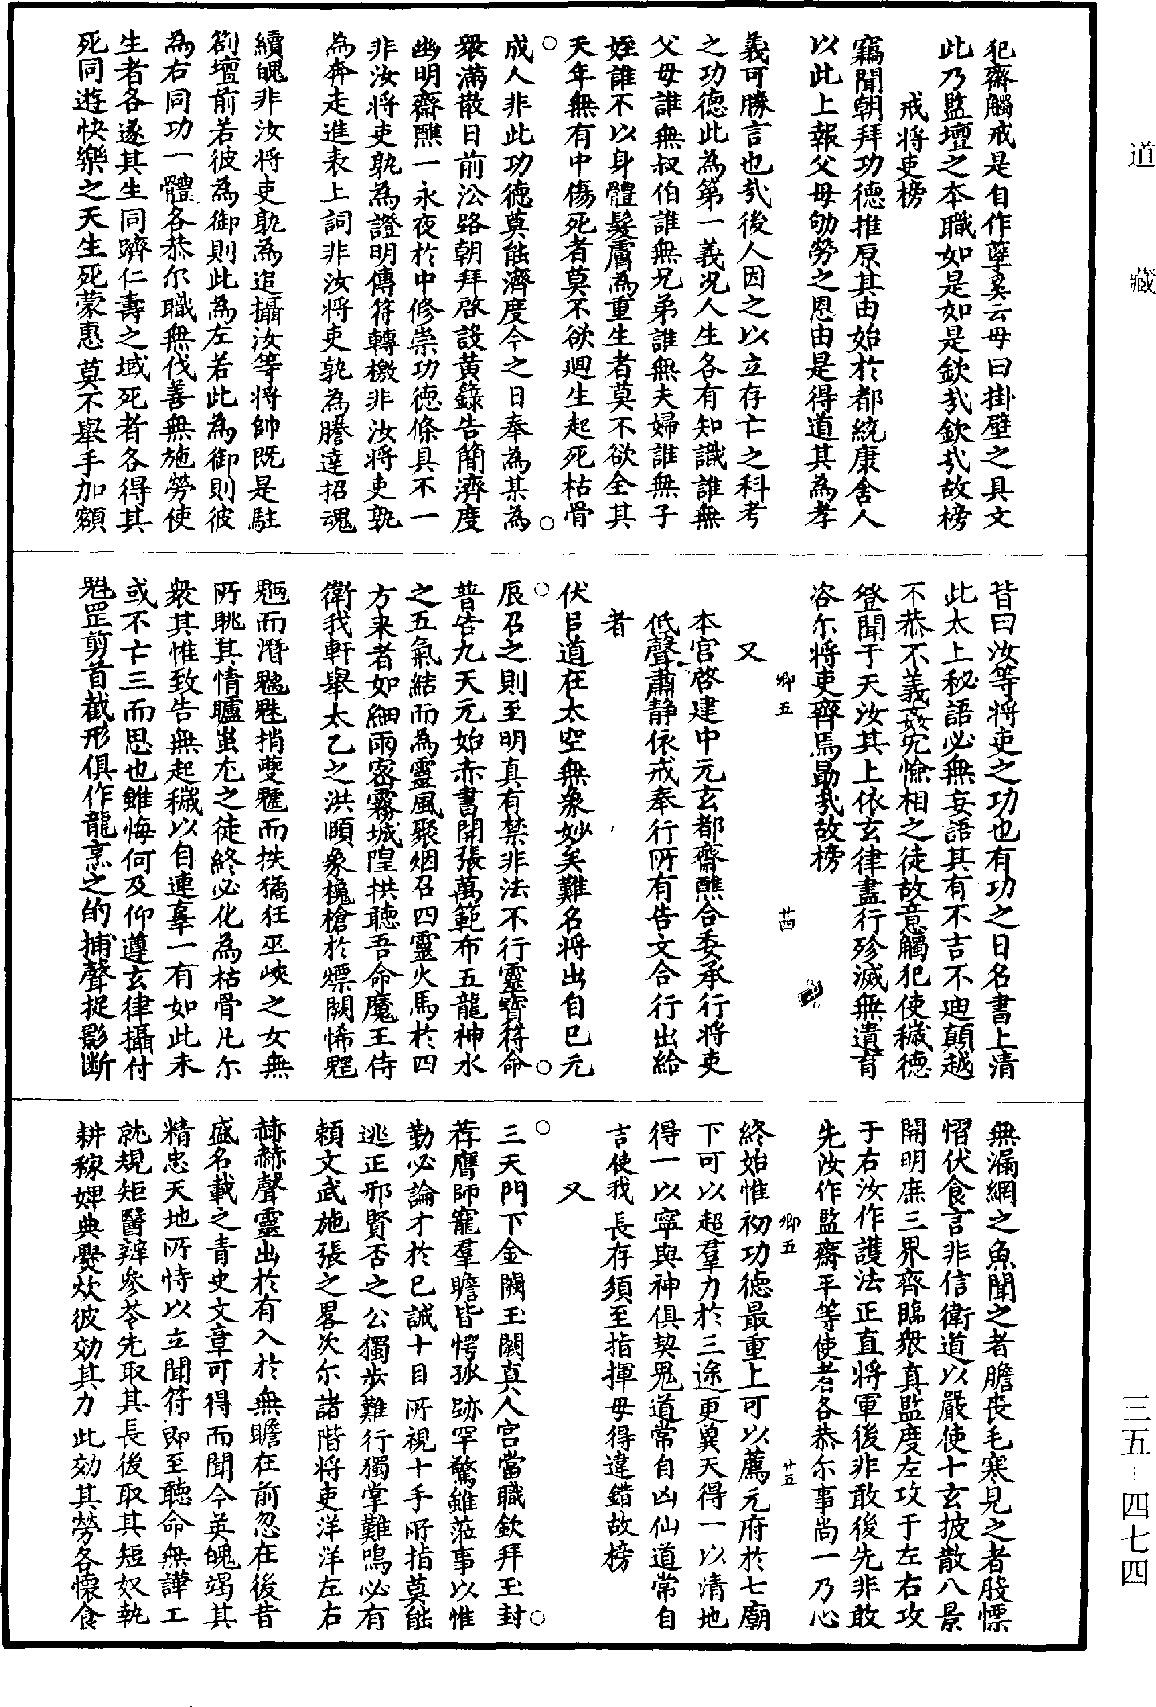 道藏
三五—四七四
犯齋觸戒是自作孽奚云毋曰掛壁之具文
此乃監壇之本職如是如是欽哉欽哉故榜
戒將吏榜
竊聞朝拜功德推原其由始於都統康舍人
以此上報父母劬勞之恩由是得道其為孝
義可勝言也哉後人因之以立存亡之科考
之功德此為第一義況人生各有知識誰無
父母誰無叔伯誰無兄弟誰無夫婦誰無子
姪誰不以身體髮膚為重生者莫不欲全其
天年無有中傷死者莫不欲迴生起死枯骨
成人非此功德莫能濟度今之日奉為某為
衆滿散日前㳂路朝拜啓設黃籙告簡濟度
幽明齋醮一永夜於中修崇功德條具不一
非汝將吏孰為證明傳符轉檄非汝將吏孰
為奔走進表上詞非汝將吏孰為騰達招魂
續魄非汝將吏孰為追攝汝等將帥既是駐
劄壇前若彼為御則此為左若此為御則彼
為右同功一體各恭尔職無伐善無施勞使
生者各遂其生同躋仁壽之域死者各得其
死同遊快樂之天生死蒙惠莫不舉手加額
昔曰汝等將吏之功也有功之日名書上清
此太上秘語必無妄語其有不吉不廸顛越
不恭不義姦宄愉相之徒故意觸犯使穢德
登聞于天汝其上依玄律盡行殄滅無遺育
咨尔將吏齊焉勗哉故榜
卿五
廿四
又
本宮啓建中元玄都齋醮合委承行將吏
低聲肅静依戒奉行所有告文合行出給
者
伏㠯道在太空無象妙矣難名將出自巳元
辰召之則至明真有禁非法不行靈寶符命
普告九天元始赤書開張萬範布五龍神水
之五氣結而為靈風聚烟召四靈火馬於四
方来者如細雨密霧城隍拱聽吾命魔王侍
衛我軒舉太乙之洪頤象欃槍於熛闕悕魒
魓而潛魒魁捎夔魖而抶獝狂巫峽之女無
所眺其情臚蚩尢之徒終必化為枯骨凡尔
衆其惟致告無起穢以自連辜一有如此未
或不亡三而思也雖悔何及仰遵玄律攝付
魁罡剪首截形俱作龍烹之的捕聲捉影断
無漏網之魚聞之者膽喪毛寒見之者股慄
慴伏食言非信衛道以嚴使十玄披散八景
開明庶三界齊臨衆真監度左攻于左右攻
于右汝作護法正直將軍後非敢後先非敢
先汝作監齋平等使者各恭尔事尚一乃心
終始惟初功德最重上可以薦元府於七廟
下可以超羣力於三途更冀天得一以清地
得一以寧與神俱契鬼道常自凶仙道常自
吉使我長存須至指揮毋得違錯故榜
卿五
廿五
又
三天門下金闕玉闕真人宮當職欽拜玉封
荐膺師寵羣瞻皆愕孤跡罕驚雖蒞事以惟
勤必論才於已誠十目所視十手所指莫能
逃正邪賢否之公獨步難行獨掌難鳴必有
頼文武施張之畧次尔諸階將吏洋洋左右
赫赫聲靈出於有入於無瞻在前忽在後昔
盛名載之青史文章可得而聞今英魄竭其
精忠天地所恃以立聞符即至聽命無譁工
就規矩醫辨參苓先取其長後取其短奴執
耕稼婢典爨炊彼効其力此効其勞各懷食